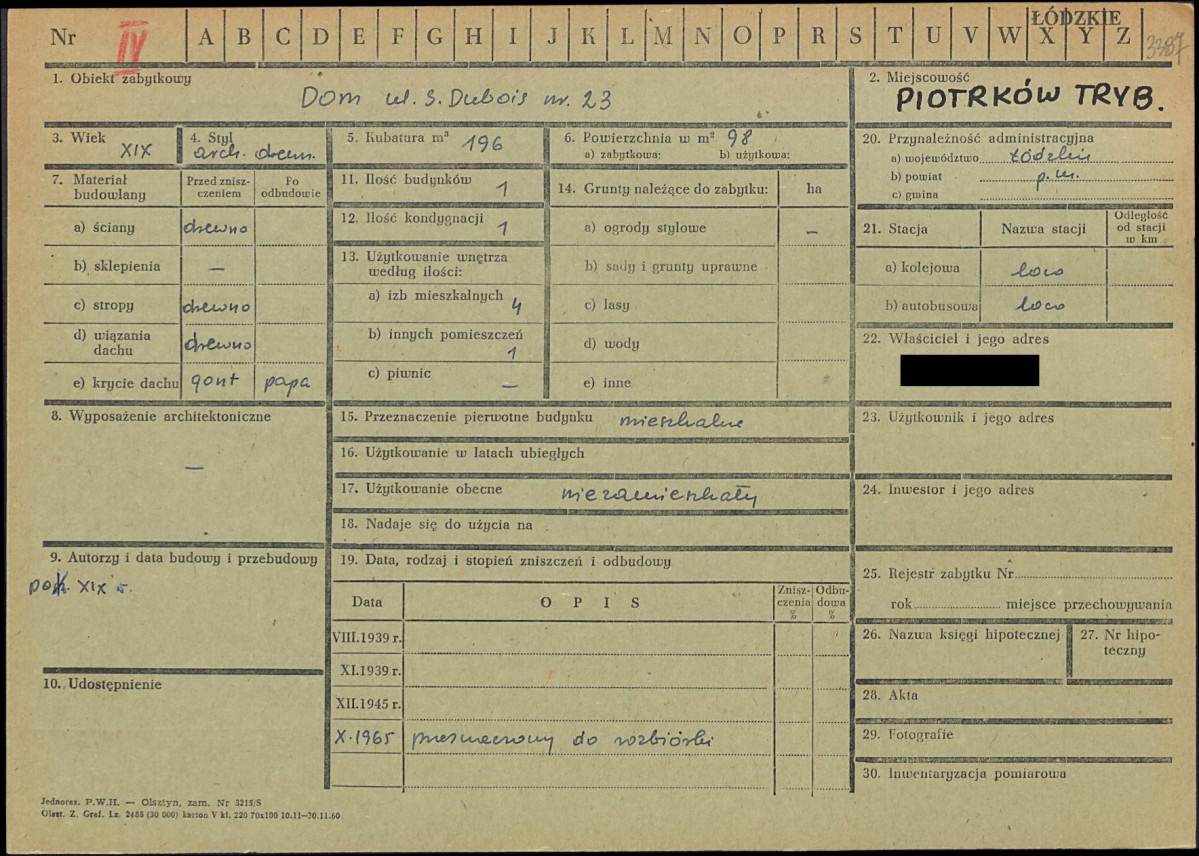 Nr IV A B C D E F G H I J K L M N O P R S T U V W X Y Z
ŁÓDZKIE
3387
1. Obiekt zabytkowy
Dom ul. S. Dubois nr. 23
2. Miejscowość
PIOTRKÓW TRYB.
3. Wiek
XIX
4. Styl
arch. drewn.
5. Kubatura m³ 196
6. Powierzchnia w m² 98
a) zabytkowa: b) użytkowa:
7. Materiał budowlany
Przed znisz-
czeniem
Po
odbudowie
a) ściany drewno
b) sklepienia —
c) stropy drewno
d) wiązania
dachu drewno
e) krycie dachu gont papa
8. Wyposażenie architektoniczne
—
9. Autorzy i data budowy i przebudowy
poł. XIX w.
10. Udostępnienie
11. Ilość budynków 1
12. Ilość kondygnacji 1
13. Użytkowanie wnętrza
według ilości:
a) izb mieszkalnych 4
b) innych pomieszczeń
1
c) piwnic —
14. Grunty należące do zabytku: ha
a) ogrody stylowe —
b) sady i grunty uprawne
c) lasy
d) wody
e) inne
15. Przeznaczenie pierwotne budynku mieszkalne
16. Użytkowanie w latach ubiegłych
17. Użytkowanie obecne niezamieszkały
18. Nadaje się do użycia na
19. Data, rodzaj i stopień zniszczeń i odbudowy
Data OPIS
Znisz-
czenia
%
Odbu-
dowa
%
VIII.1939 r.
XI.1939 r.
XII.1945 r.
X.1965 przeznaczony do rozbiórki
20. Przynależność administracyjna
a) województwo Łódzkie
b) powiat p. m.
c) gmina
21. Stacja Nazwa stacji
Odległość
od stacji
w km
a) kolejowa loco
b) autobusowa loco
22. Właściciel i jego adres
23. Użytkownik i jego adres
24. Inwestor i jego adres
25. Rejestr zabytku Nr
rok miejsce przechowywania
26. Nazwa księgi hipotecznej
27. Nr hipo-
teczny
28. Akta
29. Fotografie
30. Inwentaryzacja pomiarowa
Jednoraz. P.W.H. — Olsztyn, zam. Nr 3215/S
Olszt. Z. Graf. Lz. 2488 (30 000) karton V kl. 220 70x100 10.11—30.11.60